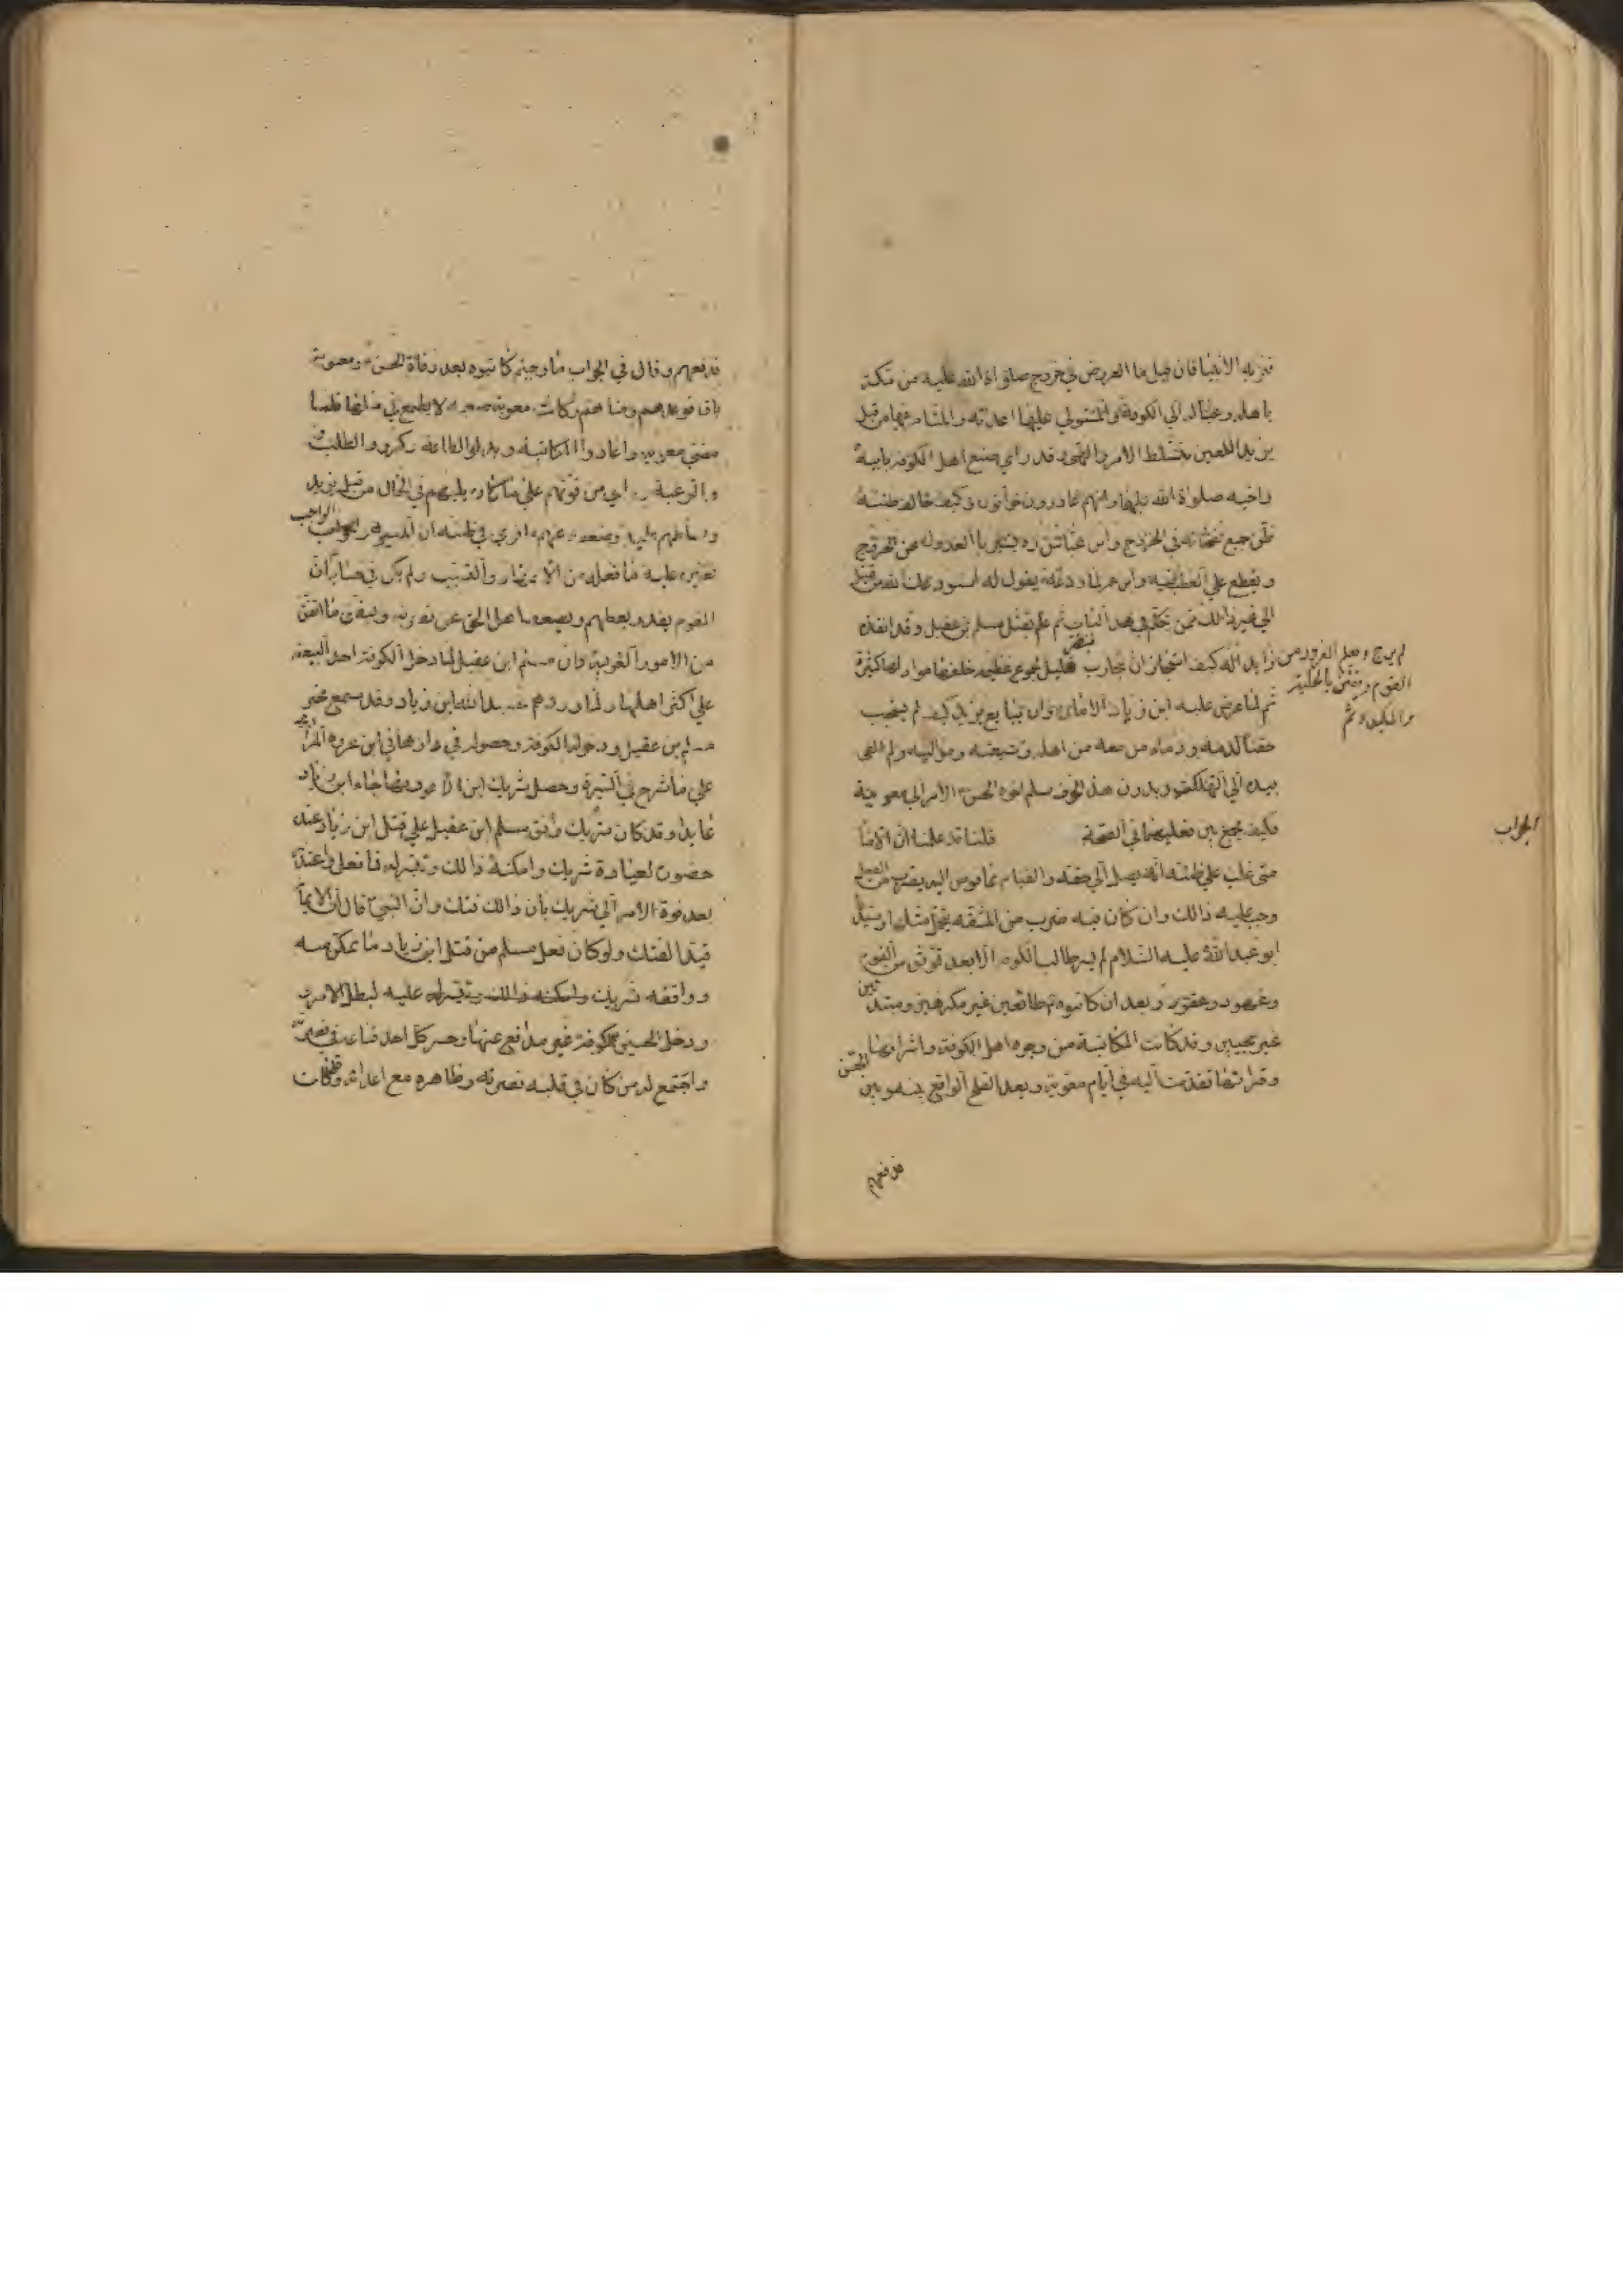 تنزيه الأنبيا فان قيل ما العرض في خروج صلواة الله عليه من مكة
باهله وعياله الي الكوفة والمستولي عليها اعدائه والمتامر فيها من قبل
يزيد اللعين متسلط الامر والنهي وقد راي صنع اهل الكوفه بابيه
واخيه صلواة الله عليهما وانهم غادرون خوانون وكيف خالف ظنه
ظن جميع نصحائه في الخروج وابن عباس ره يشير بالعدول عن الخروج
ويقطع علي العطب فيه وابن عمر لما ودعه يقول له استودعك الله من قتيل
الي غير ذالك ممن تكلم في هذا الباب ثم علم بقتل مسلم بن عقيل وقد انفذه
زايد الله كيف استجاز ان يحارب بنفر قليل لجموع عظيمه خلفها مواد لها كثيرة
لم يرج وعلم الغرور من
القوم وتفطن بالحلية
والمكيدة ثم
ثم لما عرض عليه ابن زياد الامان وان يبايع يزيد كيف لم يستجب
حقنا لدمه ودماء من معه من اهله وشيعته ومواليه ولم القي
بيده الي التهلكة وبدون هذا الخوف سلم اخوه الحسن الامر الي معوية
فكيف يجمع بين فعليهما في الصحة قلنا قد علمنا ان الاما
الجواب
متي غلب علي ظنه انه يصل الي حقه والقيام بما فوض اليه بضرب من الفعل
وجب عليه ذالك وان كان فيه ضرب من المشقه يتحمل مثلها وسيدنا
ابو عبد الله عليه السلام لم يسر طالبا الكوفه الا بعد توثق من القوم
وعهود وعقود وبعد ان كاتبوه طائعين غير مكرهين ومبتدئين
غير مجيبين وقد كانت المكاتبة من وجوه اهل الكوفة واشرافها
وقرائها تقدمت اليه في ايام معوية وبعد الصلح الواقع بينه وبين الحسن
فدفعهم
فدفعهم وقال في الجواب ما وجب ثم كاتبوه بعد وفاة الحسن ومعوية
باق فوعدهم ومناهم وكانت معوية صعبه لا يطمع في مثلها فلما
مضي معوية واعادوا المكاتبة وبذلوا الطاعة وكرروا الطلب
والرغبة وراي من قوتهم علي ما كان يليهم في الحال من قبل يزيد
وتسلطهم عليه وضعفه عنهم ما قوي في ظنه ان المسير هو الواجب
تعين عليه ما فعله من الاجتهاد والتسبب ولم يكن في حسابه ان
القوم يغدر بعضهم ويضعف اهل الحق عن نصرته ويتفق ما اتفق
من الامور الغريبة وان مسلم ابن عقيل لما دخل الكوفة اخذ البيعة
علي اكثر اهلها ولما وردهم عبيد الله ابن زياد وقد سمع بخبر
مسلم بن عقيل ودخوله الكوفة وحصوله في دار هاني ابن عروة المرادي
علي ما شرح في السيرة وحصل شريك ابن الاعور بها جاءه ابن زياد
عايدا وقد كان شريك وافق مسلم ابن عقيل علي قتل ابن زياد عند
حضوره لعيادة شريك وامكنه ذالك وتيسر له فما فعل واعتذر
بعد فوة الامر الي شريك بان ذالك فتك وان النبي قال ان الايمان
قيد الفتك ولو كان فعل مسلم من قتل ابن زياد ما تمكن منه
ووافقه شريك وامكنه ذالك وتيسر له عليه لبطل الامر
ودخل الحسين الكوفة غير مدافع عنها وحسر كل احد قناعه في نصرته
واجتمع له من كان في قلبه نصرته وظاهره مع اعدائه وقد كان